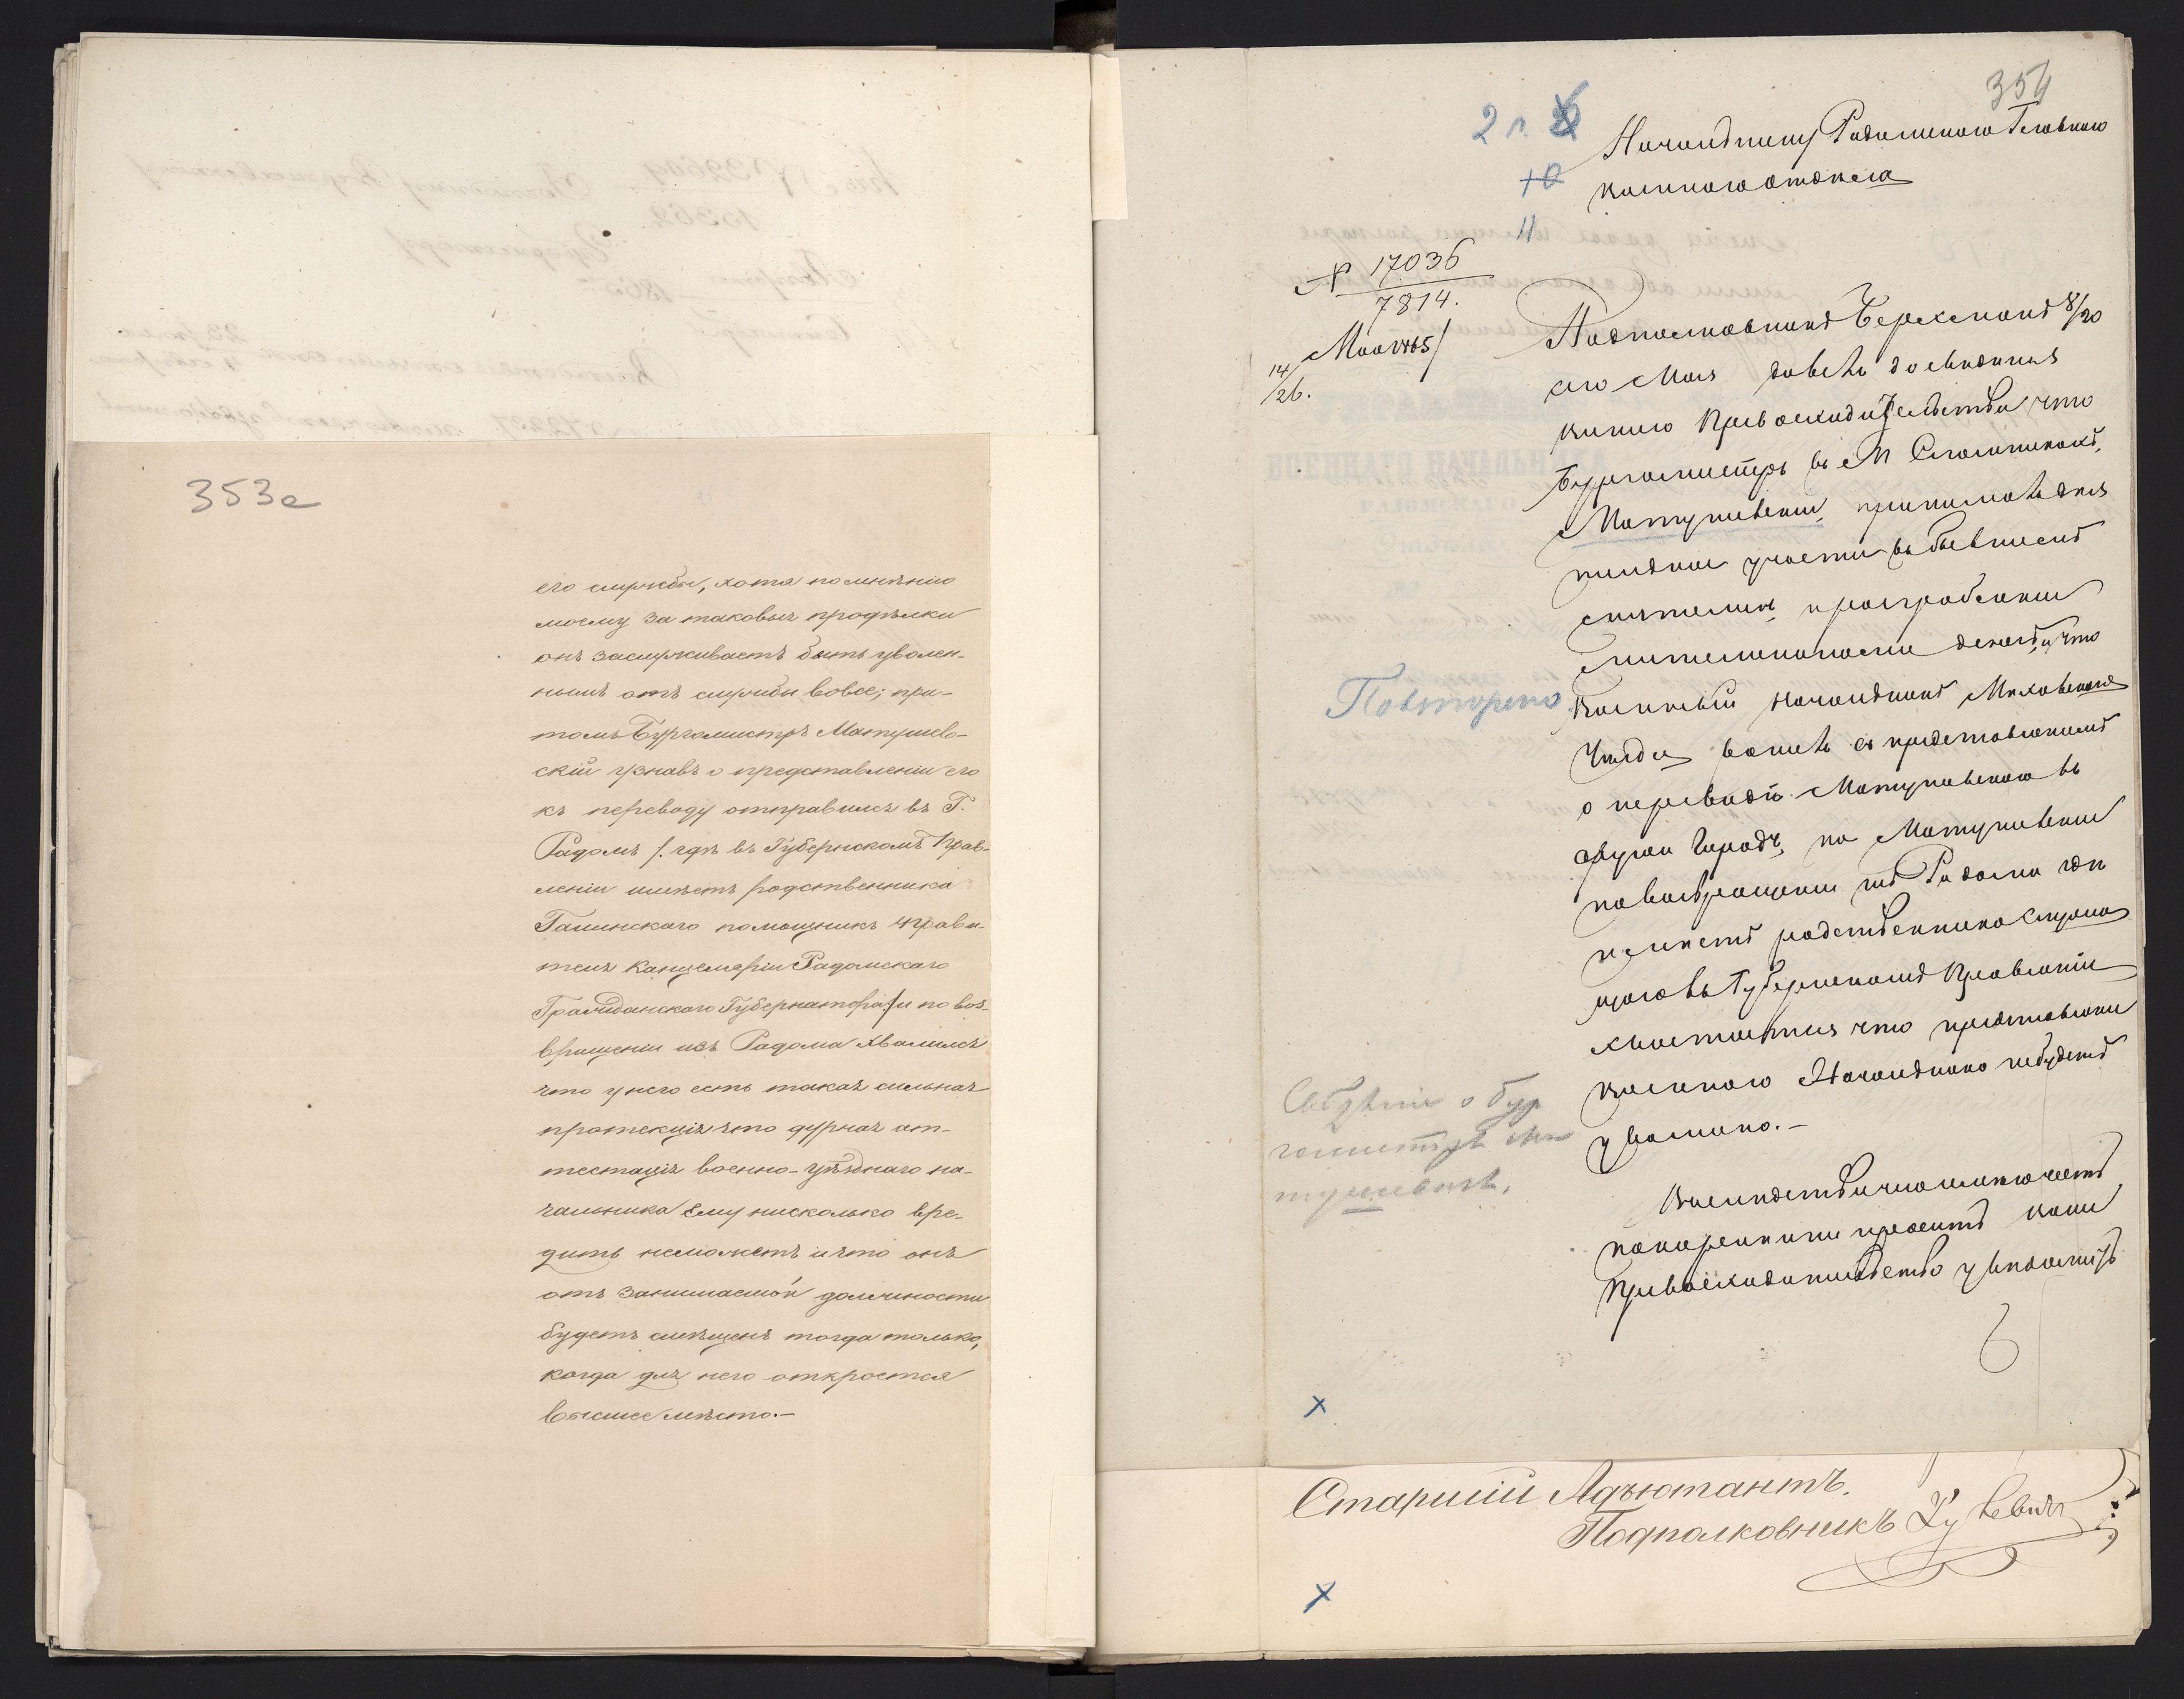 353а
его службы, хотя по мнѣнію
моему за таковыя продѣлки
онъ заслуживаетъ быть уволен-
нымъ отъ службы вовсе; при-
томъ Бургомистръ Матушев-
скій узнавъ о представленіи его
къ переводу отправился въ Г.
Радомъ /. гдѣ въ Губернскомъ Прав-
леніи имѣетъ родственника
Галинскаго помощникъ Прави-
теля Канцеляріи Радомскаго
Гражданскаго Губернатора ./ и по воз-
вращеніи изъ Радома хвалился
что у него есть такая сильная
протекція что дурная ат-
тестація военно-уѣзднаго на-
чальника ему нисколько вре-
дить неможетъ и что онъ
отъ занимаемой должности
будетъ смѣщенъ тогда только,
когда для него откроется
высшее мѣсто.-
354
2 л.
10
11
Начальнику Радомскаго Главнаго
военнаго отдѣла
№ 17036
7814.
Мая 1865
14/26.
Подполковникъ 8/20
сего Мая довелъ до свѣдѣнія
вашего Превосходительства что
Бургомистръ въ М
Матушевскій, принималъ
участіе въ бывшемъ
разграбленіи
денегъ, и что
Военный Начальникъ Мѣховскаго
Уѣзда вошелъ съ представленіемъ
о переводѣ Матушевскаго въ
другой Городъ, но Матушевскій
по возвращеніи изъ Радома гдѣ
имѣетъ родственника служа
щаго въ Губернскомъ Правленіи
хвастается что представленіе
военнаго Начальника небудетъ
уважено.-
Повторено
Свѣдѣніе о Бур
гомистрѣ Ма
тушевскѣ.
покорнѣйше проситъ ваше
Превосходительство увѣдомить
Старшій Адъютантъ.
Подполковникъ